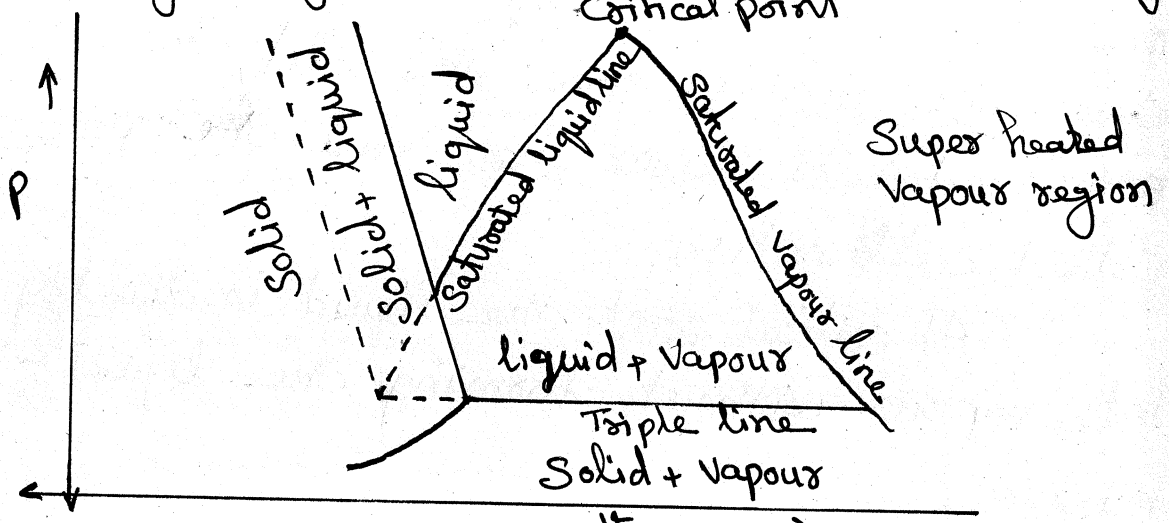 Critical point
Solid
Solid + liquid
liquid
Saturated liquid line
Saturated vapour line
Super heated
Vapour region
P
liquid + Vapour
Triple line
Solid + Vapour